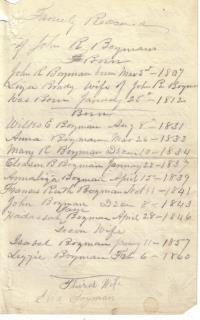 Family Record
of John R Bozman
Born
John R Bozman born Mar 5th - 1807
Wife of John R Bozman
Was Born January 25th 1812
Born
Bozman Aug 8th - 1831
Bozman Mar 26 - 1833
Mary R Bozman Decem 10 - 1834
Bozman January 28 - 1837
Bozman April 15 - 1839
Francis Ruth Bozman Oct 11 - 1841
John Bozman Decem 8 - 1843
Hadassah Bozman April 28 - 1846
Wife
Isabel Bozman 11 - 1857
Lizzie Bozman Feb 6 - 1860
Third Wife
Bozman